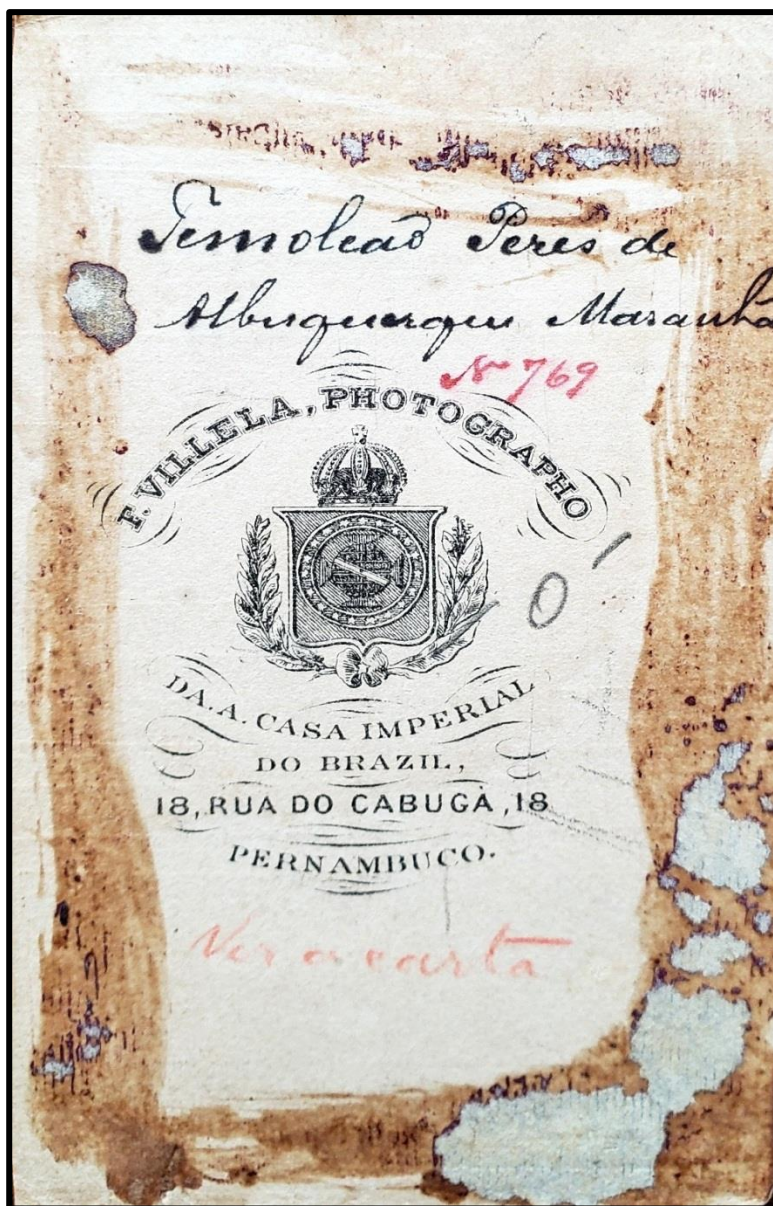 Temoleaõ Peres de
Albuquerque Maranhã
Nº 769
F. VILLELA, PHOTOGRAPHO
O
DA. A. CASA IMPERIAL
DO BRAZIL,
18, RUA DO CABUGÀ, 18
PERNAMBUCO.
Ver a carta